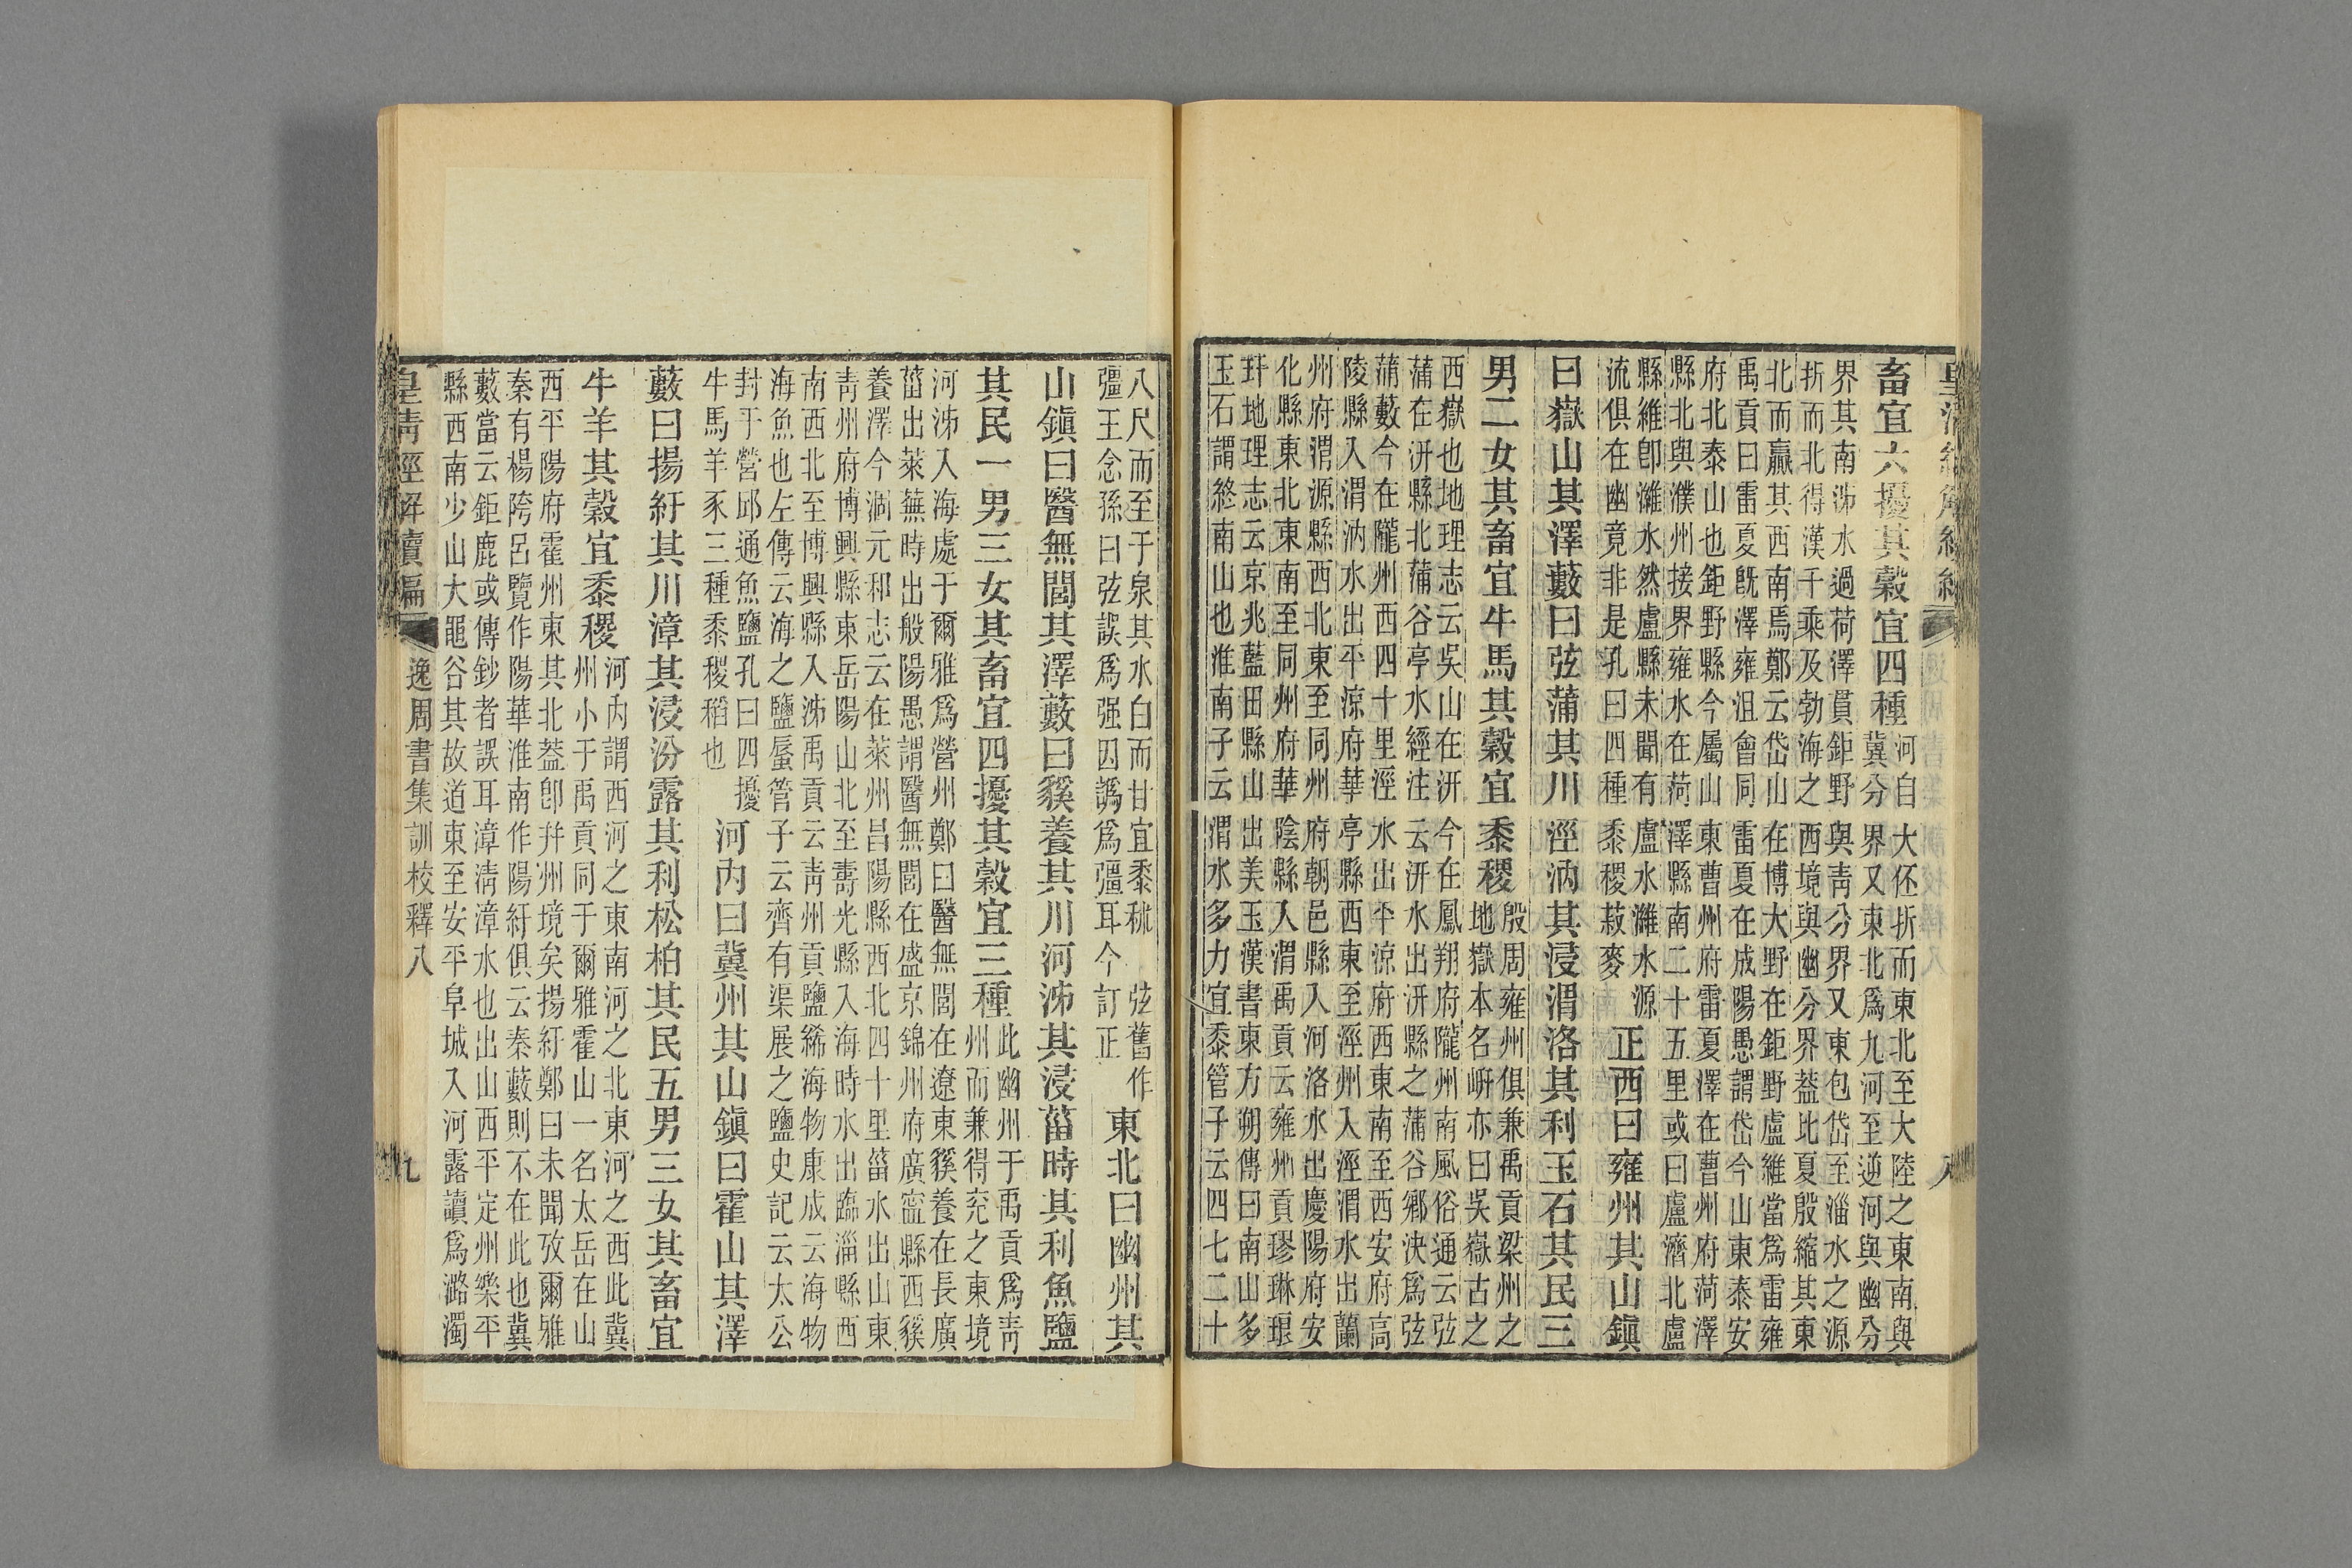 畜宜六擾其穀宜四種
河自大伾折而東北至大陸之東南與
冀分界又東北爲九河至逆河與幽分
界其南泲水過荷澤貫鉅野與靑分界又東包岱至淄水之源
折而北得漢千乘及勃海之西境與幽分界葢比夏殷縮其東
北而贏其西南焉鄭云岱山在博大野在鉅野盧維當爲雷雍
禹貢曰雷夏旣澤雍沮會同雷夏在成陽愚謂岱今山東泰安
府北泰山也鉅野縣今屬山東曹州府雷夏澤在曹州府菏澤
縣北與濮州接界雍水在菏澤縣南二十五里或曰盧濟北盧
縣維卽濰水然盧縣未聞有盧水濰水源
流俱在幽竟非是孔曰四種黍稷菽麥
正西曰雍州其山鎮
曰嶽山其澤藪曰弦蒲其川涇汭其浸渭洛其利玉石其民三
男二女其畜宜牛馬其穀宜黍稷
殷周雍州俱兼禹貢梁州之
地嶽本名岍亦曰吳嶽古之
西嶽也地理志云吳山在汧今在鳳翔府隴州南風俗通云弦
蒲在汧縣北蒲谷亭水經注云汧水出汧縣之蒲谷鄉決爲弦
蒲藪今在隴州西四十里涇水出平涼府西東南至西安府高
陵縣入渭汭水出平涼府華亭縣西東至涇州入涇渭水出蘭
州府渭源縣西北東至同州府朝邑縣入河洛水出慶陽府安
化縣東北東南至同州府華陰縣入渭禹貢云雍州貢璆琳琅
玕地理志云京兆藍田縣山出美玉漢書東方朔傳曰南山多
玉石謂終南山也淮南子云渭水多力宜黍管子云四七二十
八尺而至于泉其水白而甘宜黍秫 弦舊作
彊王念孫曰弦誤爲强因譌爲彊耳今訂正
東北曰幽州其
山鎮曰醫無閭其澤藪曰豯養其川河泲其浸菑時其利魚鹽
其民一男三女其畜宜四擾其穀宜三種
此幽州于禹貢爲靑
州而兼得兖之東境
河泲入海處于爾雅爲營州鄭曰醫無閭在遼東豯養在長廣
菑出萊蕪時出般陽愚謂醫無閭在盛京錦州府廣寧縣西豯
養澤今涸元和志云在萊州昌陽縣西北四十里菑水出山東
靑州府博興縣東岳陽山北至壽光縣入海時水出臨淄縣西
南西北至博興縣入泲禹貢云靑州貢鹽絺海物康成云海物
海魚也左傳云海之鹽蜃管子云齊有渠展之鹽史記云太公
封于營邱通魚鹽孔曰四擾
牛馬羊豕三種黍稷稻也
河內曰冀州其山鎮曰霍山其澤
藪曰揚紆其川漳其浸汾露其利松柏其民五男三女其畜宜
牛羊其穀宜黍稷
河內謂西河之東南河之北東河之西此冀
州小于禹貢同于爾雅霍山一名太岳在山
西平陽府霍州東其北葢卽幷州境矣揚紆鄭曰未聞攷爾雅
秦有楊陓呂覽作陽華淮南作陽紆俱云秦藪則不在此也冀
藪當云鉅鹿或傳鈔者誤耳漳淸漳水也出山西平定州樂平
縣西南少山大黽谷其故道東至安平阜城入河露讀爲潞濁
皇清經解續編 逸周書集訓校釋八 九